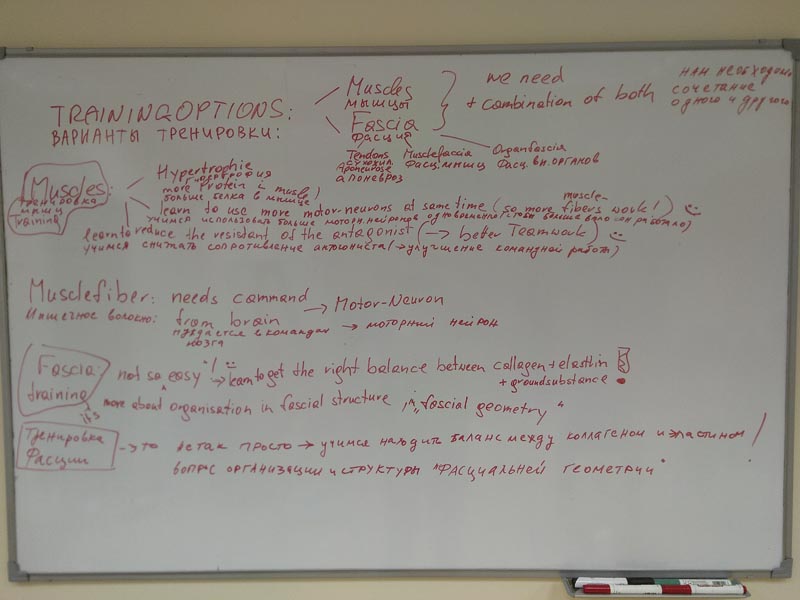 TRAININGOPTIONS:
ВАРИАНТЫ ТРЕНИРОВКИ:
Muscles
мышцы
Fascia
фасция
we need
+ combination of both
нам необходимо
сочетание
одного и другого
Tendons
сухожил.
Aponeurose
апоневроз
Musclefaccia
Фасц. мышц
Organfascia
Фасц. вн. органов
Muscles:
тренировка
мышц
Training
Hypertrophie
гипертрофия
more Protein in muscle)
больше белка в мышце
learn to use more motor-neurons at same time (so more muscle-fibers work!)
учимся использовать больше моторн. нейронов одновременно
learn to reduce the resistant of the antagonist (→ better Teamwork)
учимся снижать сопротивление антогониста (→ улучшение командной работ)
Musclefiber: needs command → Motor-Neuron
Мишечное волокно: from brain
нуждается в командах → моторний нейрон
мозга
Fascia:
training
not so easy"! → learn to get the right balance between collagen + elasthin
+ groundsubstance
it's more about organisation in fascial structure, in „fascial geometry"
Тренировка
Фасции
→ это не так просто → учимся находить баланс между коллагеном и эластином
вопрос организации и структуры "фасциальней геометрии"